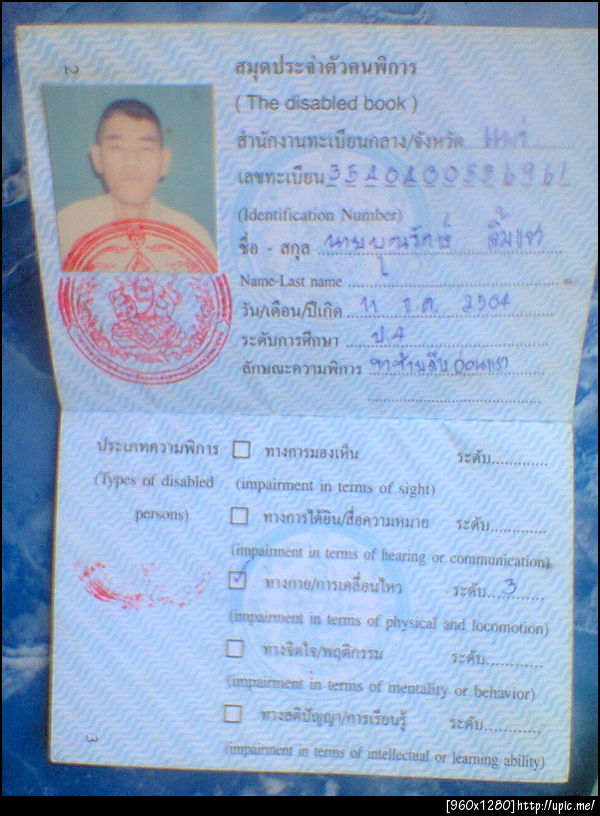 2
สมุดประจำตัวคนพิการ
( The disabled book )
สำนักงานทะเบียนกลาง/จังหวัด แพร่
เลขทะเบียน
(Identification Number)
ชื่อ - สกุล นายบุญรักษ์
Name-Last name
วัน/เดือน/ปีเกิด 11 ธ.ค. 2504
ระดับการศึกษา ป.4
ลักษณะความพิการ ขาซ้ายลีบ อ่อนแรง
ประเภทความพิการ
(Types of disabled persons)
ทางการมองเห็น ระดับ............
(impairment in terms of sight)
ทางการได้ยิน/สื่อความหมาย ระดับ............
(impairment in terms of hearing or communication)
ทางกาย/การเคลื่อนไหว ระดับ...3.........
(impairment in terms of physical and locomotion)
ทางจิตใจ/พฤติกรรม ระดับ............
(impairment in terms of mentality or behavior)
ทางสติปัญญา/การเรียนรู้ ระดับ............
(impairment in terms of intellectual or learning ability)
3
[960x1280]http://upic.me/